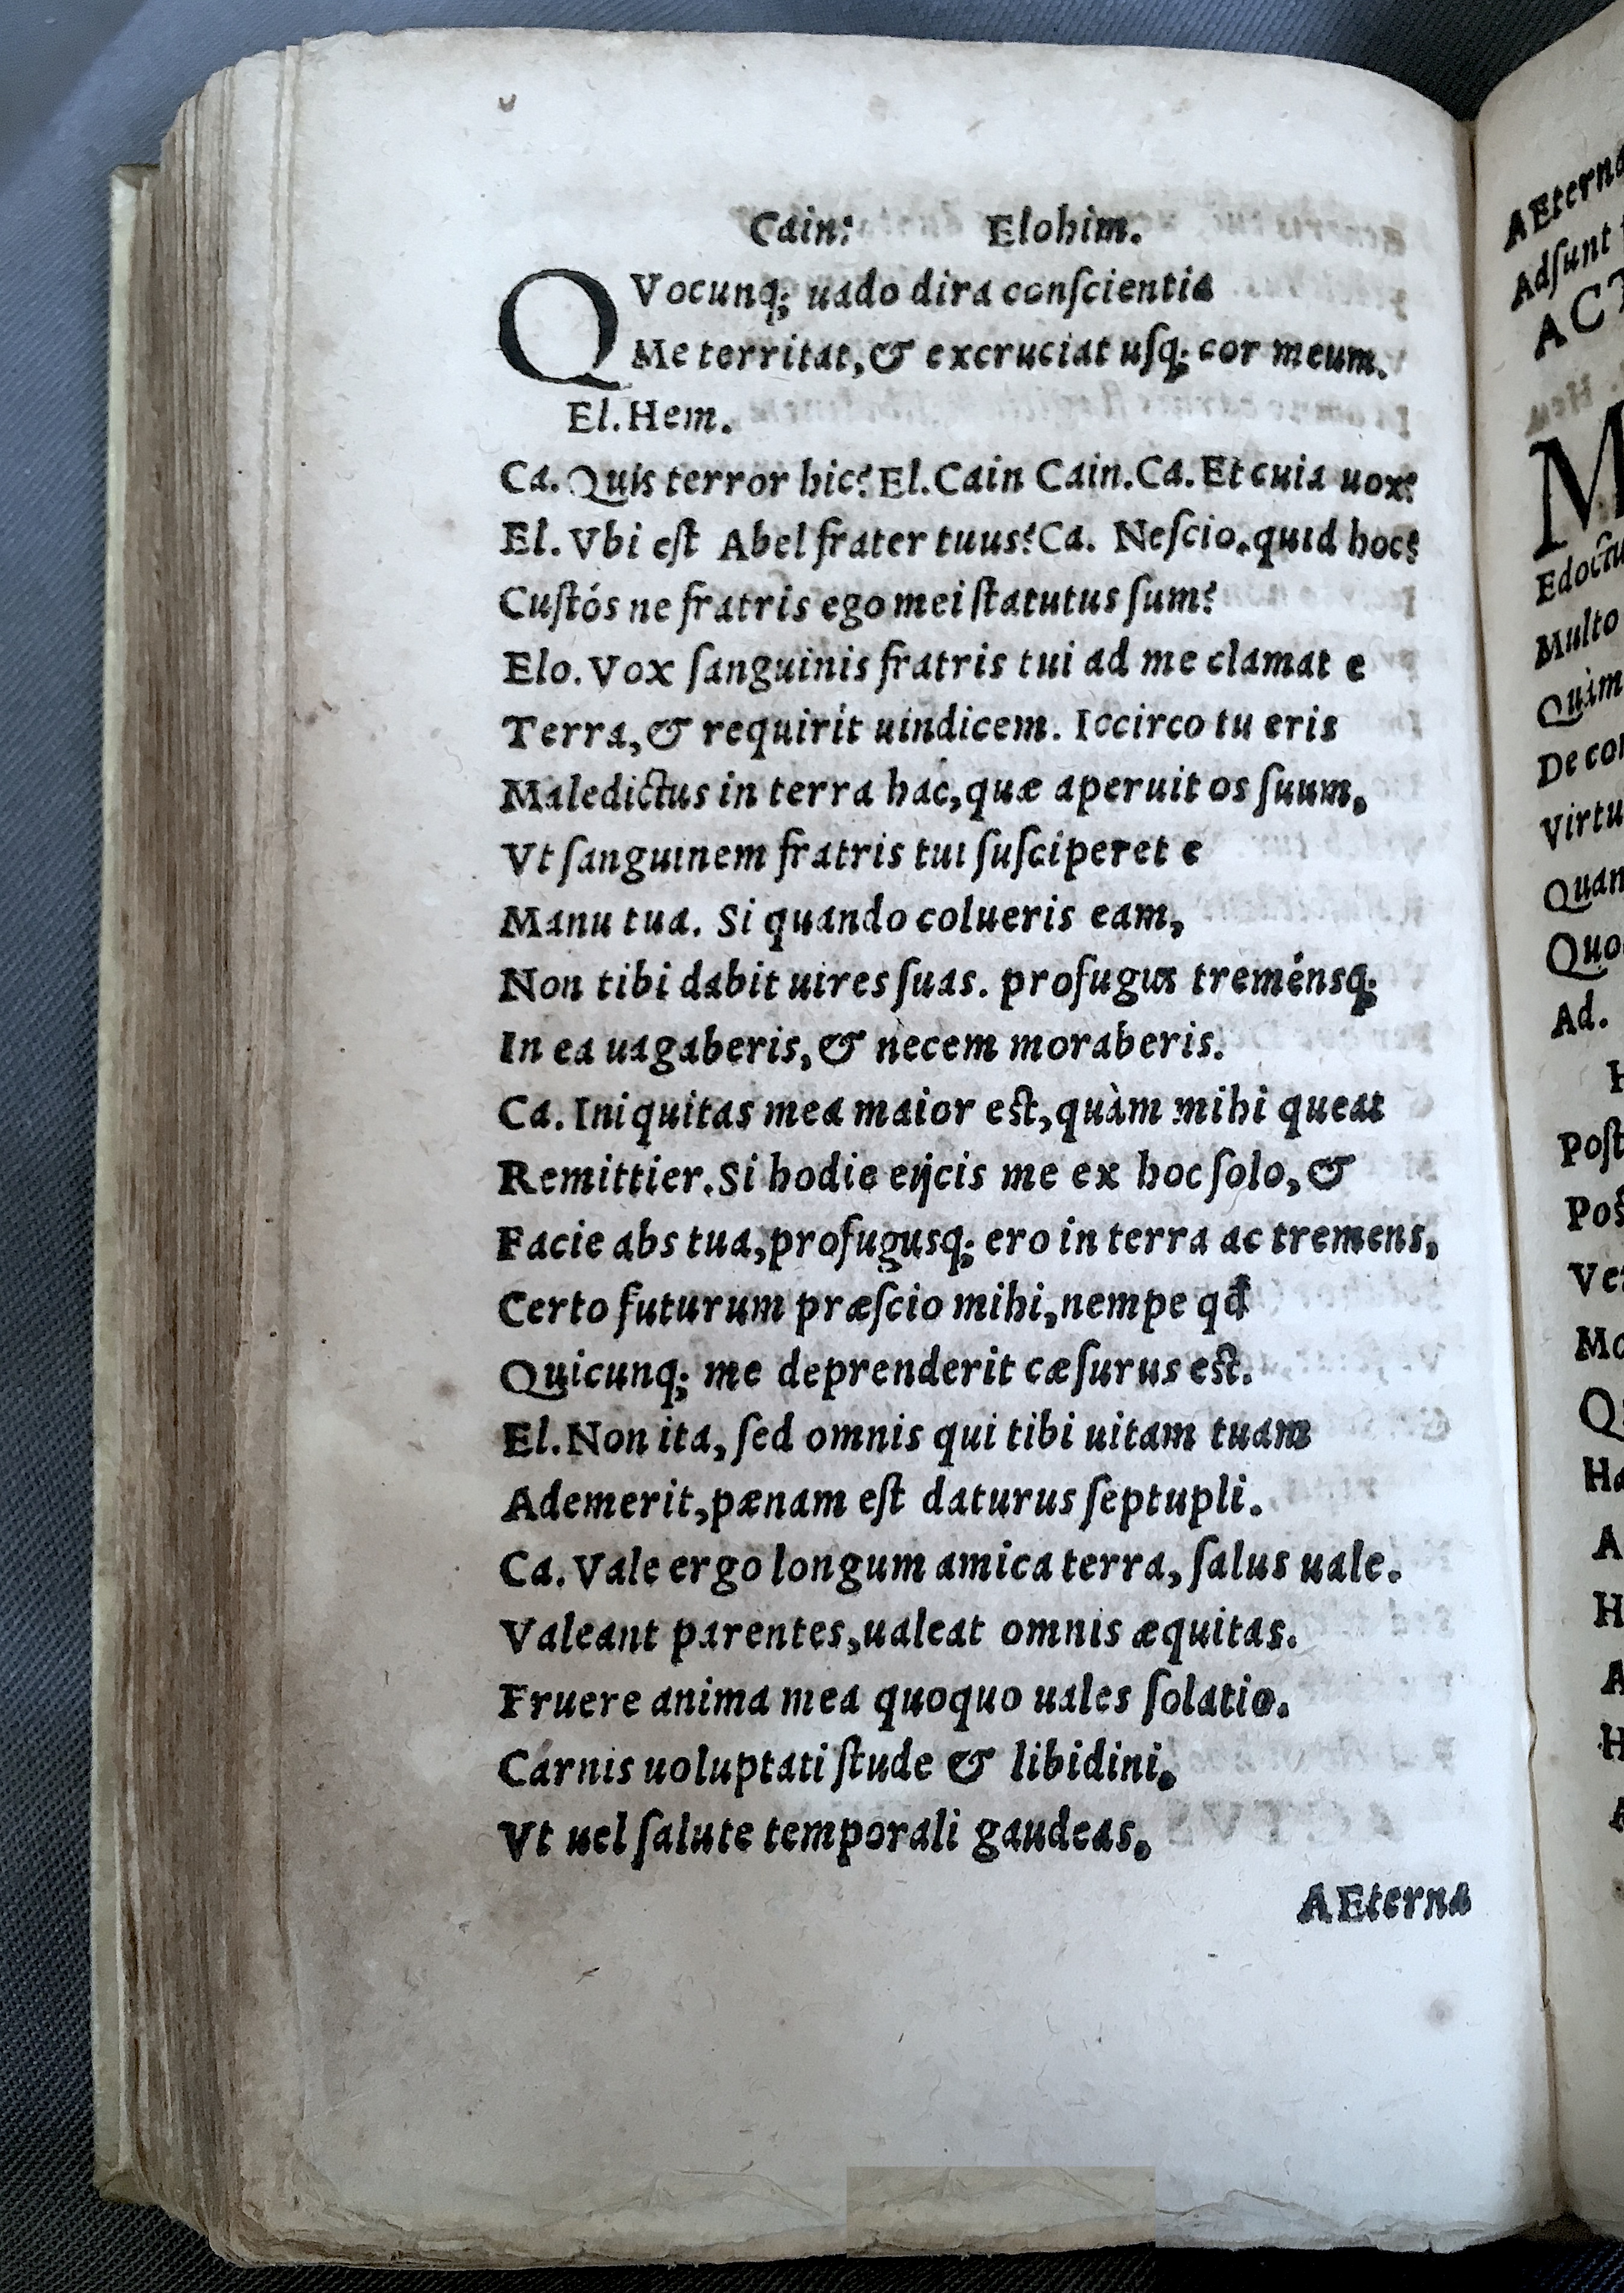 Cain: Elohim.
QVocunq; uado dira conſcientia
Me territat, & excruciat uſq; cor meum.
El. Hem.
Ca. Quis terror hic? El. Cain Cain. Ca. Et cuia uox?
El. Vbi eſt Abel frater tuus? Ca. Neſcio. quid hoc?
Cuſtós ne fratris ego mei ſtatutus ſum?
Elo. Vox ſanguinis fratris tui ad me clamat e
Terra, & requirit uindicem. Iccirco tu eris
Maledictus in terra hac, quæ aperuit os ſuum,
Vt ſanguinem fratris tui ſuſciperet e
Manu tua. Si quando colueris eam,
Non tibi dabit uires ſuas. profugus treménsq;
In ea uagaberis, & necem moraberis.
Ca. Iniquitas mea maior eſt, quàm mihi queat
Remittier. Si hodie eijcis me ex hoc ſolo, &
Facie abs tua, profugusq; ero in terra ac tremens,
Certo futurum præſcio mihi, nempe qd
Quicunq; me deprenderit cæſurus eſt.
El. Non ita, ſed omnis qui tibi uitam tuam
Ademerit, pænam eſt daturus ſeptupli.
Ca. Vale ergo longum amica terra, ſalus uale.
Valeant parentes, ualeat omnis æquitas.
Fruere anima mea quoquo uales ſolatio.
Carnis uoluptati ſtude & libidini,
Vt uel ſalute temporali gaudeas.
AEterna
AEterna
Adſunt
ACT
M
Edoctu
Multo
Quim
De con
Virtu
Quan
Quo
Ad.
H
Poſt
Poſ
Ve
Mo
Q
Ha
A
H
A
H